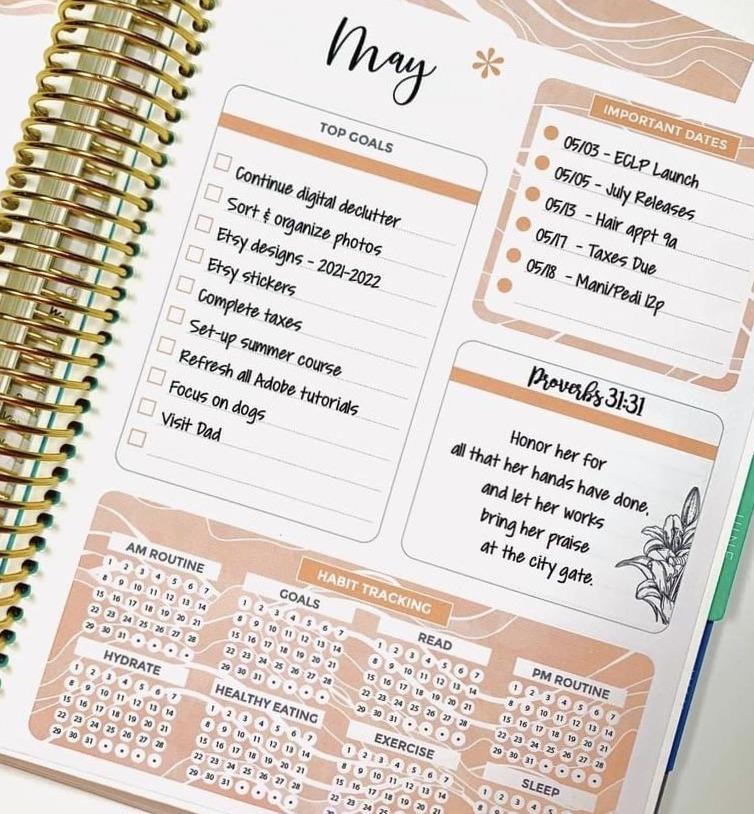 May *
TOP GOALS
Continue digital declutter
Sort & organize photos
Etsy designs - 2021-2022
Etsy stickers
Complete taxes
Set-up summer course
Refresh all Adobe tutorials
Focus on dogs
Visit Dad
IMPORTANT DATES
05/03 - ECLP Launch
05/05 - July Releases
05/13 - Hair appt 9a
05/17 - Taxes Due
05/18 - Mani/Pedi 12p
Proverbs 31:31
Honor her for
all that her hands have done,
and let her works
bring her praise
at the city gate.
JUNE
HABIT TRACKING
AM ROUTINE
1 2 3 4 5 6 7
8 9 10 11 12 13 14
15 16 17 18 19 20 21
22 23 24 25 26 27 28
29 30 31
GOALS
1 2 3 4 5 6 7
8 9 10 11 12 13 14
15 16 17 18 19 20 21
22 23 24 25 26 27 28
29 30 31
READ
1 2 3 4 5 6 7
8 9 10 11 12 13 14
15 16 17 18 19 20 21
22 23 24 25 26 27 28
29 30 31
PM ROUTINE
1 2 3 4 5 6 7
8 9 10 11 12 13 14
15 16 17 18 19 20 21
22 23 24 25 26 27 28
29 30 31
HYDRATE
1 2 3 4 5 6 7
8 9 10 11 12 13 14
15 16 17 18 19 20 21
22 23 24 25 26 27 28
29 30 31
HEALTHY EATING
1 2 3 4 5 6 7
8 9 10 11 12 13 14
15 16 17 18 19 20 21
22 23 24 25 26 27 28
29 30 31
EXERCISE
1 2 3 4 5 6 7
8 9 10 11 12 13 14
15 16 17 18 19 20 21
SLEEP
1 2 3 4 5